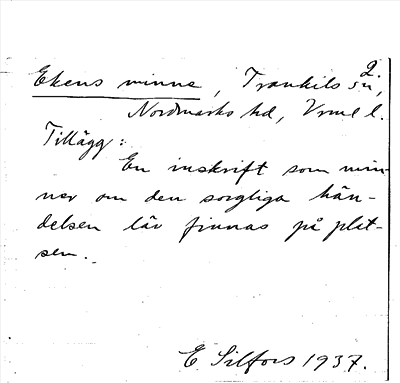 2.
Ekens minne, Trankils sn,
Nordmarks hd, Vrml l.
Tillägg:
En inskrift som min-
ner om den sorgliga hän-
delsen lär finnas på plat-
sen.
E Silfors 1937.